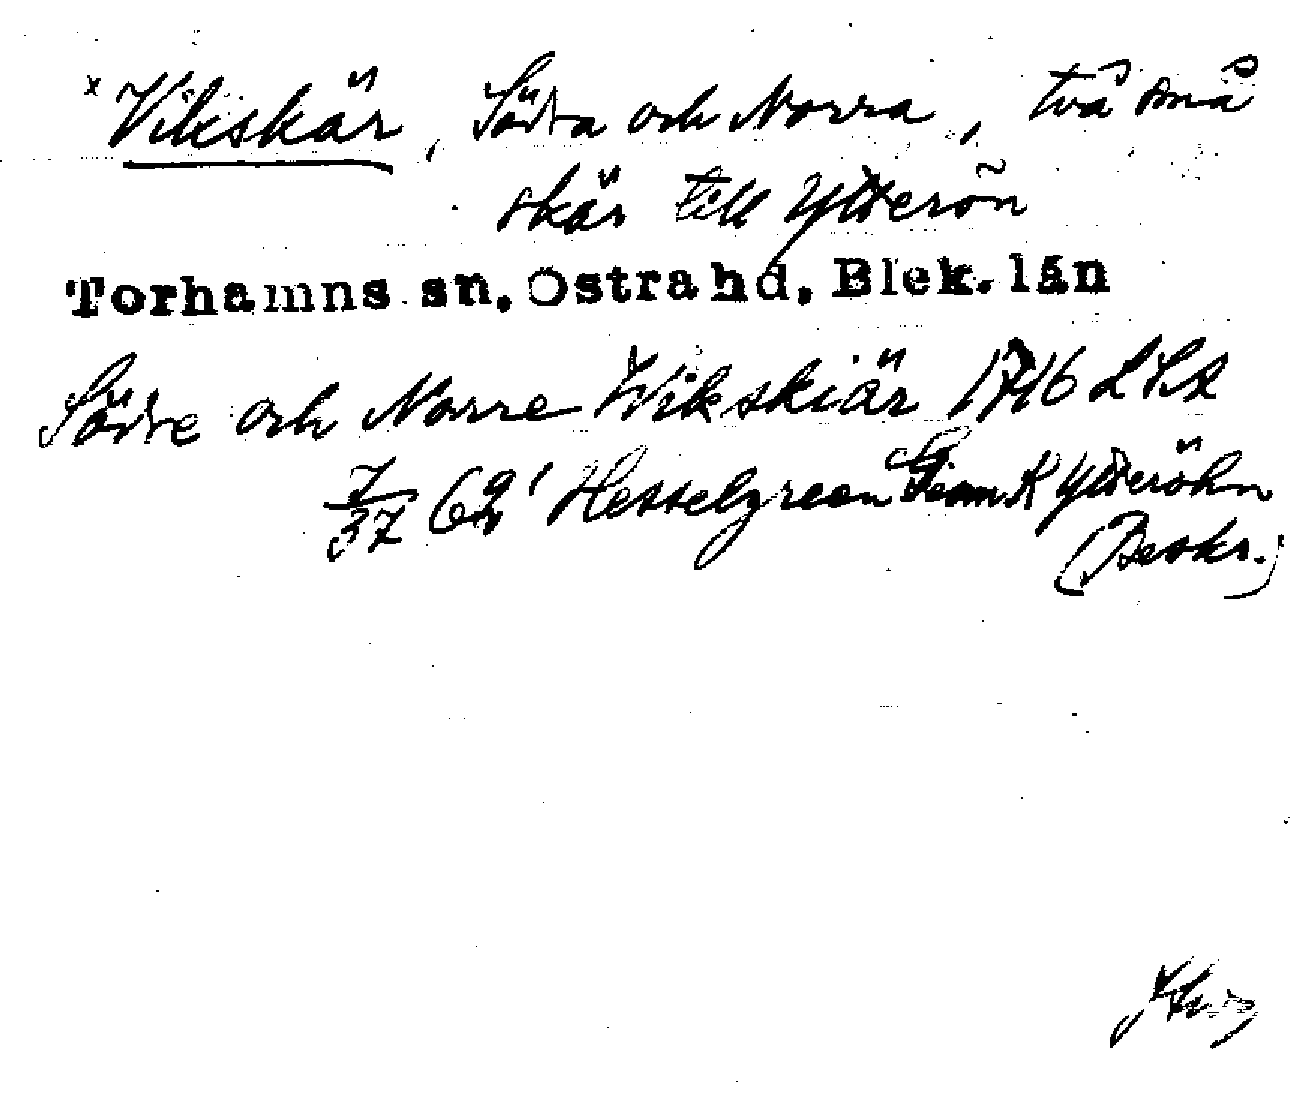 x Vikskär, Södra och Norra, två små
skär till Ytterön
Torhamns sn, Östra hd, Blek. län
Södre och Norre Wikskiär 1746 LSA
7/37 62¹ Hesselgreen Geom K Ytteröhn
(Beskr.)